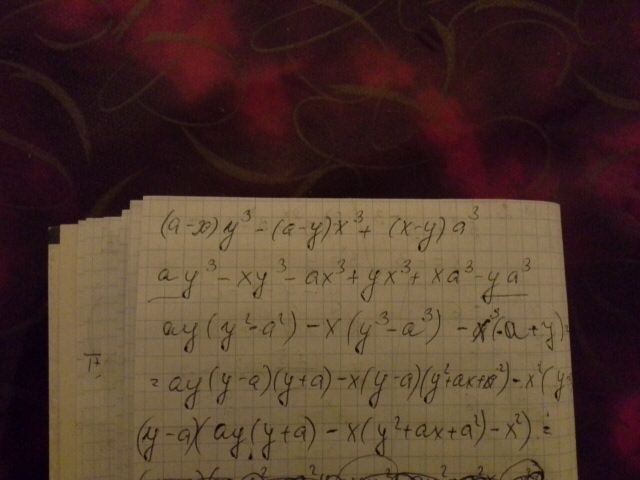 (a-x)y³-(a-y)x³+(x-y)a³
ay³-xy³-ax³+yx³+xa³-ya³
ay(y²-a²)-x(y³-a³)-x³(-a+y)=
=ay(y-a)(y+a)-x(y-a)(y²+ax+a²)-x²(y-
(y-a)(ay(y+a)-x(y²+ax+a²)-x²)=